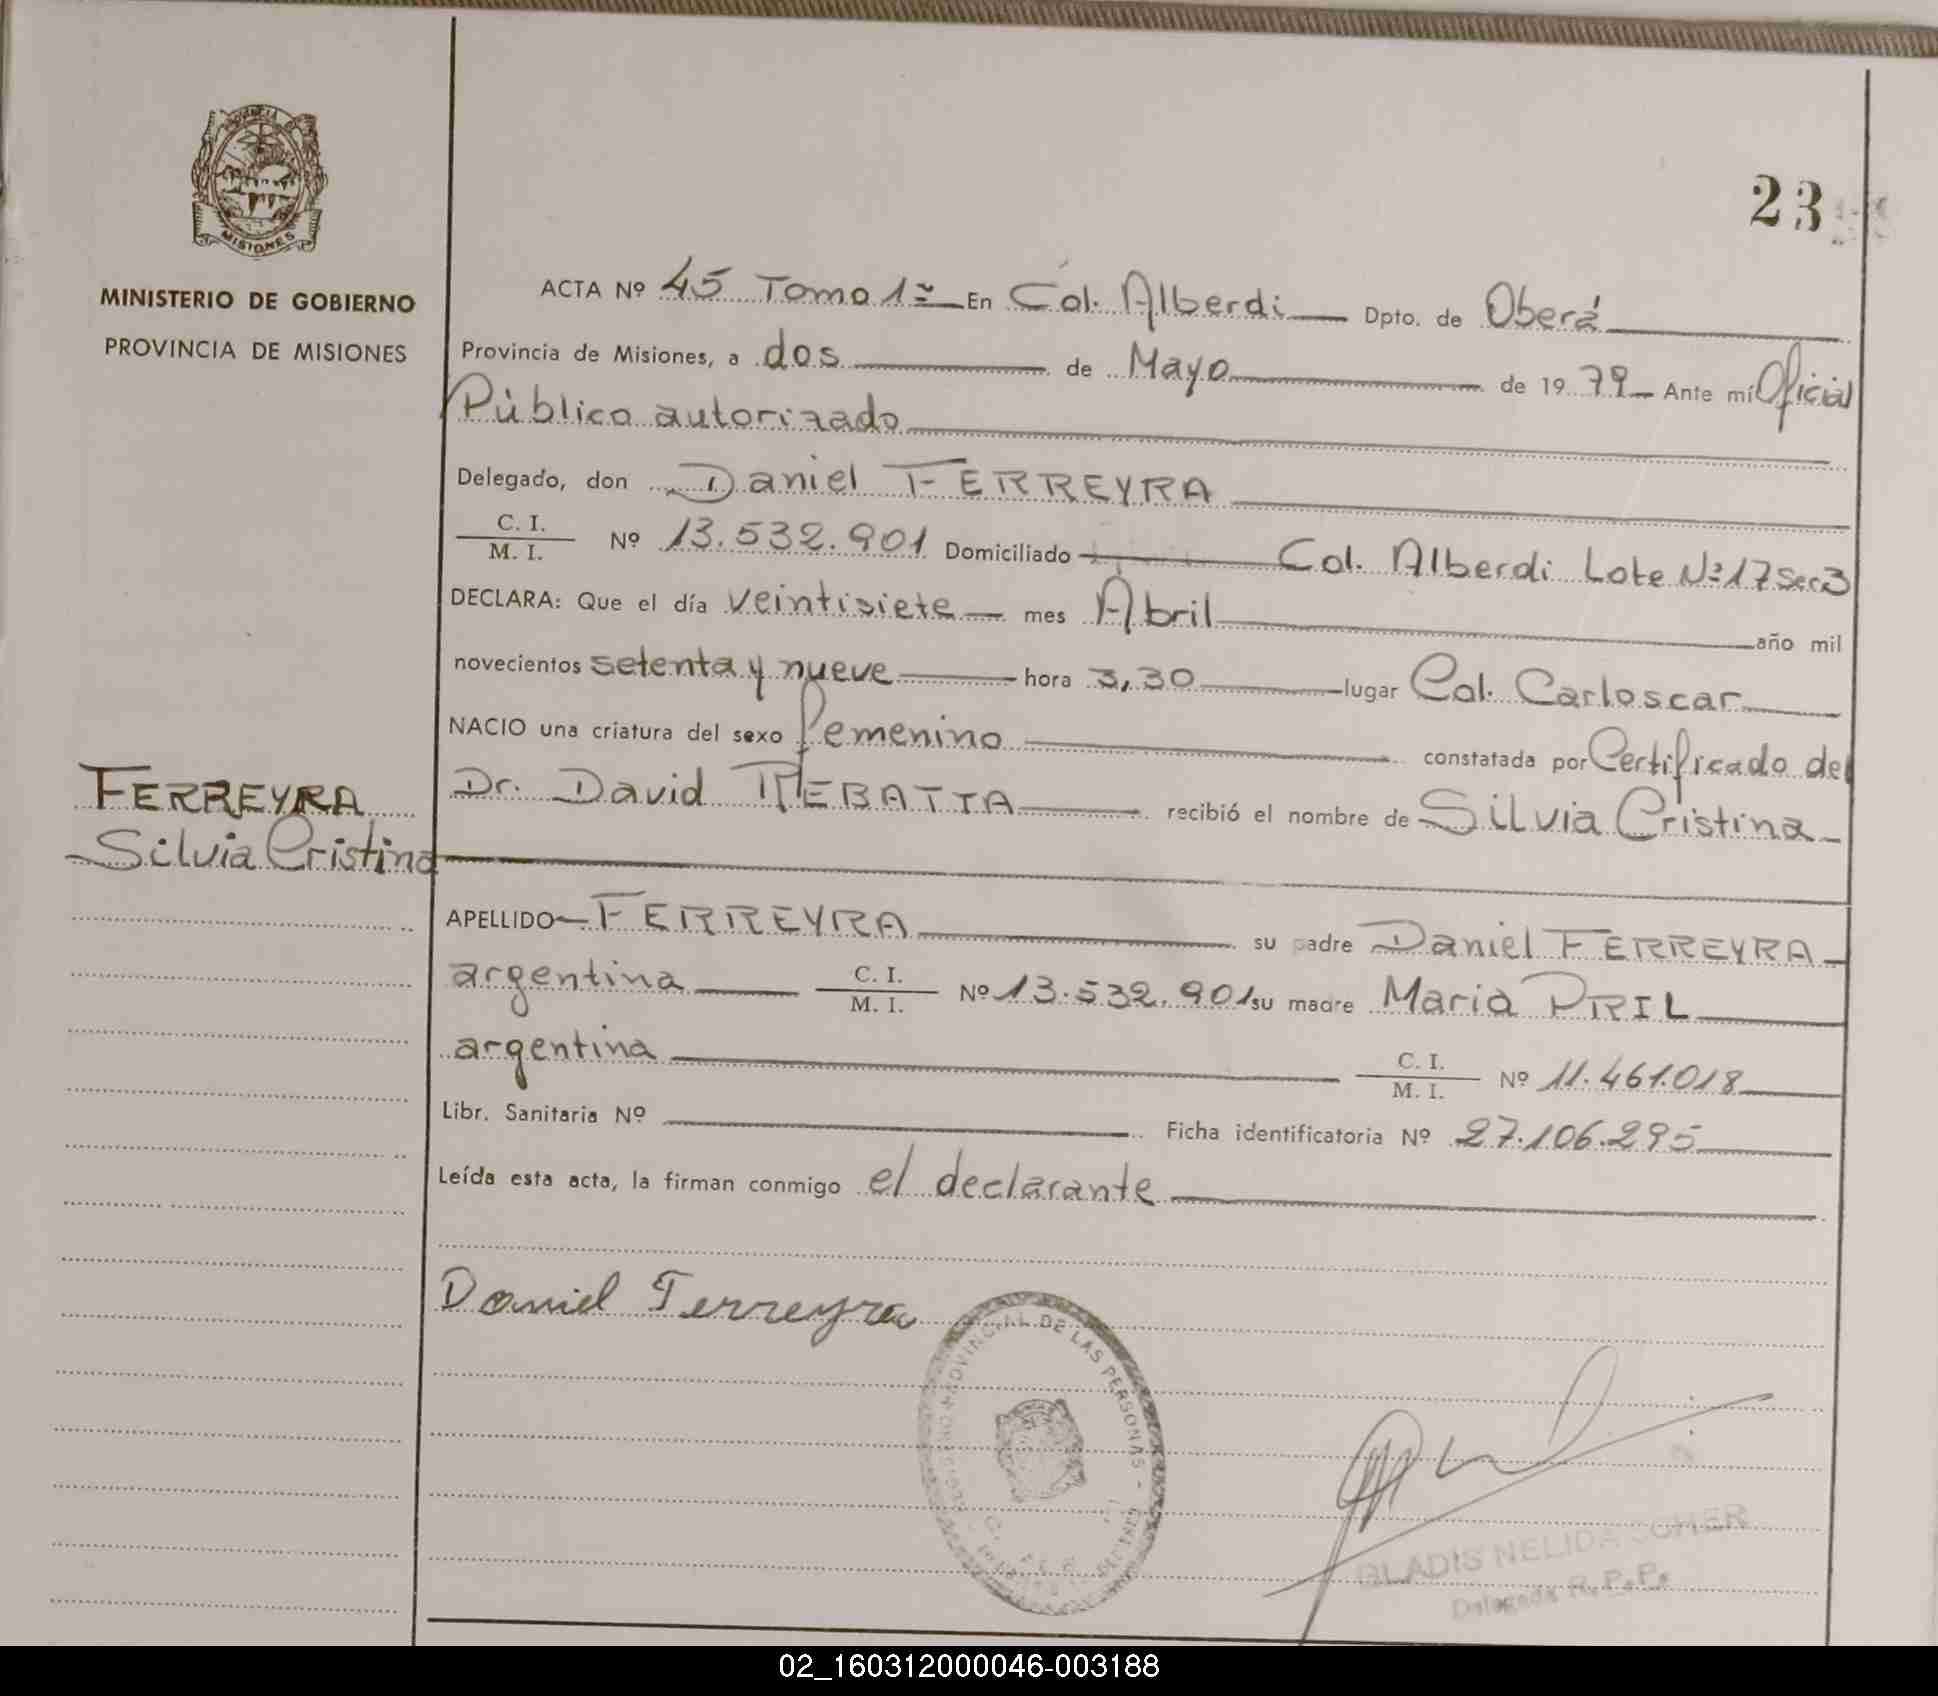 PROVINCIA DE
MISIONES
MINISTERIO DE GOBIERNO
PROVINCIA DE MISIONES
23
ACTA Nº 45 Tomo 1º En Col. Alberdi Dpto. de Oberá
Provincia de Misiones, a dos de Mayo de 1979 Ante mí Oficial
Público autorizado
Delegado, don Daniel FERREYRA
C. I.
M. I. Nº 13.532.901 Domiciliado Col. Alberdi Lote Nº 17 Sec 3
DECLARA: Que el día veintisiete mes Abril año mil
novecientos setenta y nueve hora 3,30 lugar Col. Carloscar
NACIO una criatura del sexo femenino constatada por Certificado del
Dr. David REBATTA recibió el nombre de Silvia Cristina
FERREYRA
Silvia Cristina
APELLIDO FERREYRA su padre Daniel FERREYRA
argentina C. I.
M. I. Nº 13.532.901 su madre Maria PRIL
argentina C. I.
M. I. Nº 11.461.018
Libr. Sanitaria Nº Ficha identificatoria Nº 27.106.295
Leída esta acta, la firman conmigo el declarante
Daniel Ferreyra
PROVINCIAL DE LAS PERSONAS
GLADIS NELIDA
Delegada R. P. P.
02_160312000046-003188